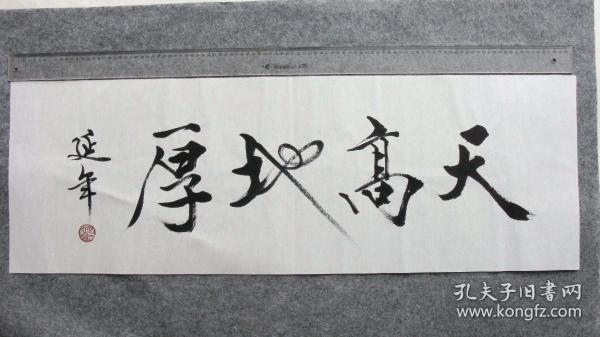 天高地厚
延年
孔夫子旧書网
www.kongfz.com